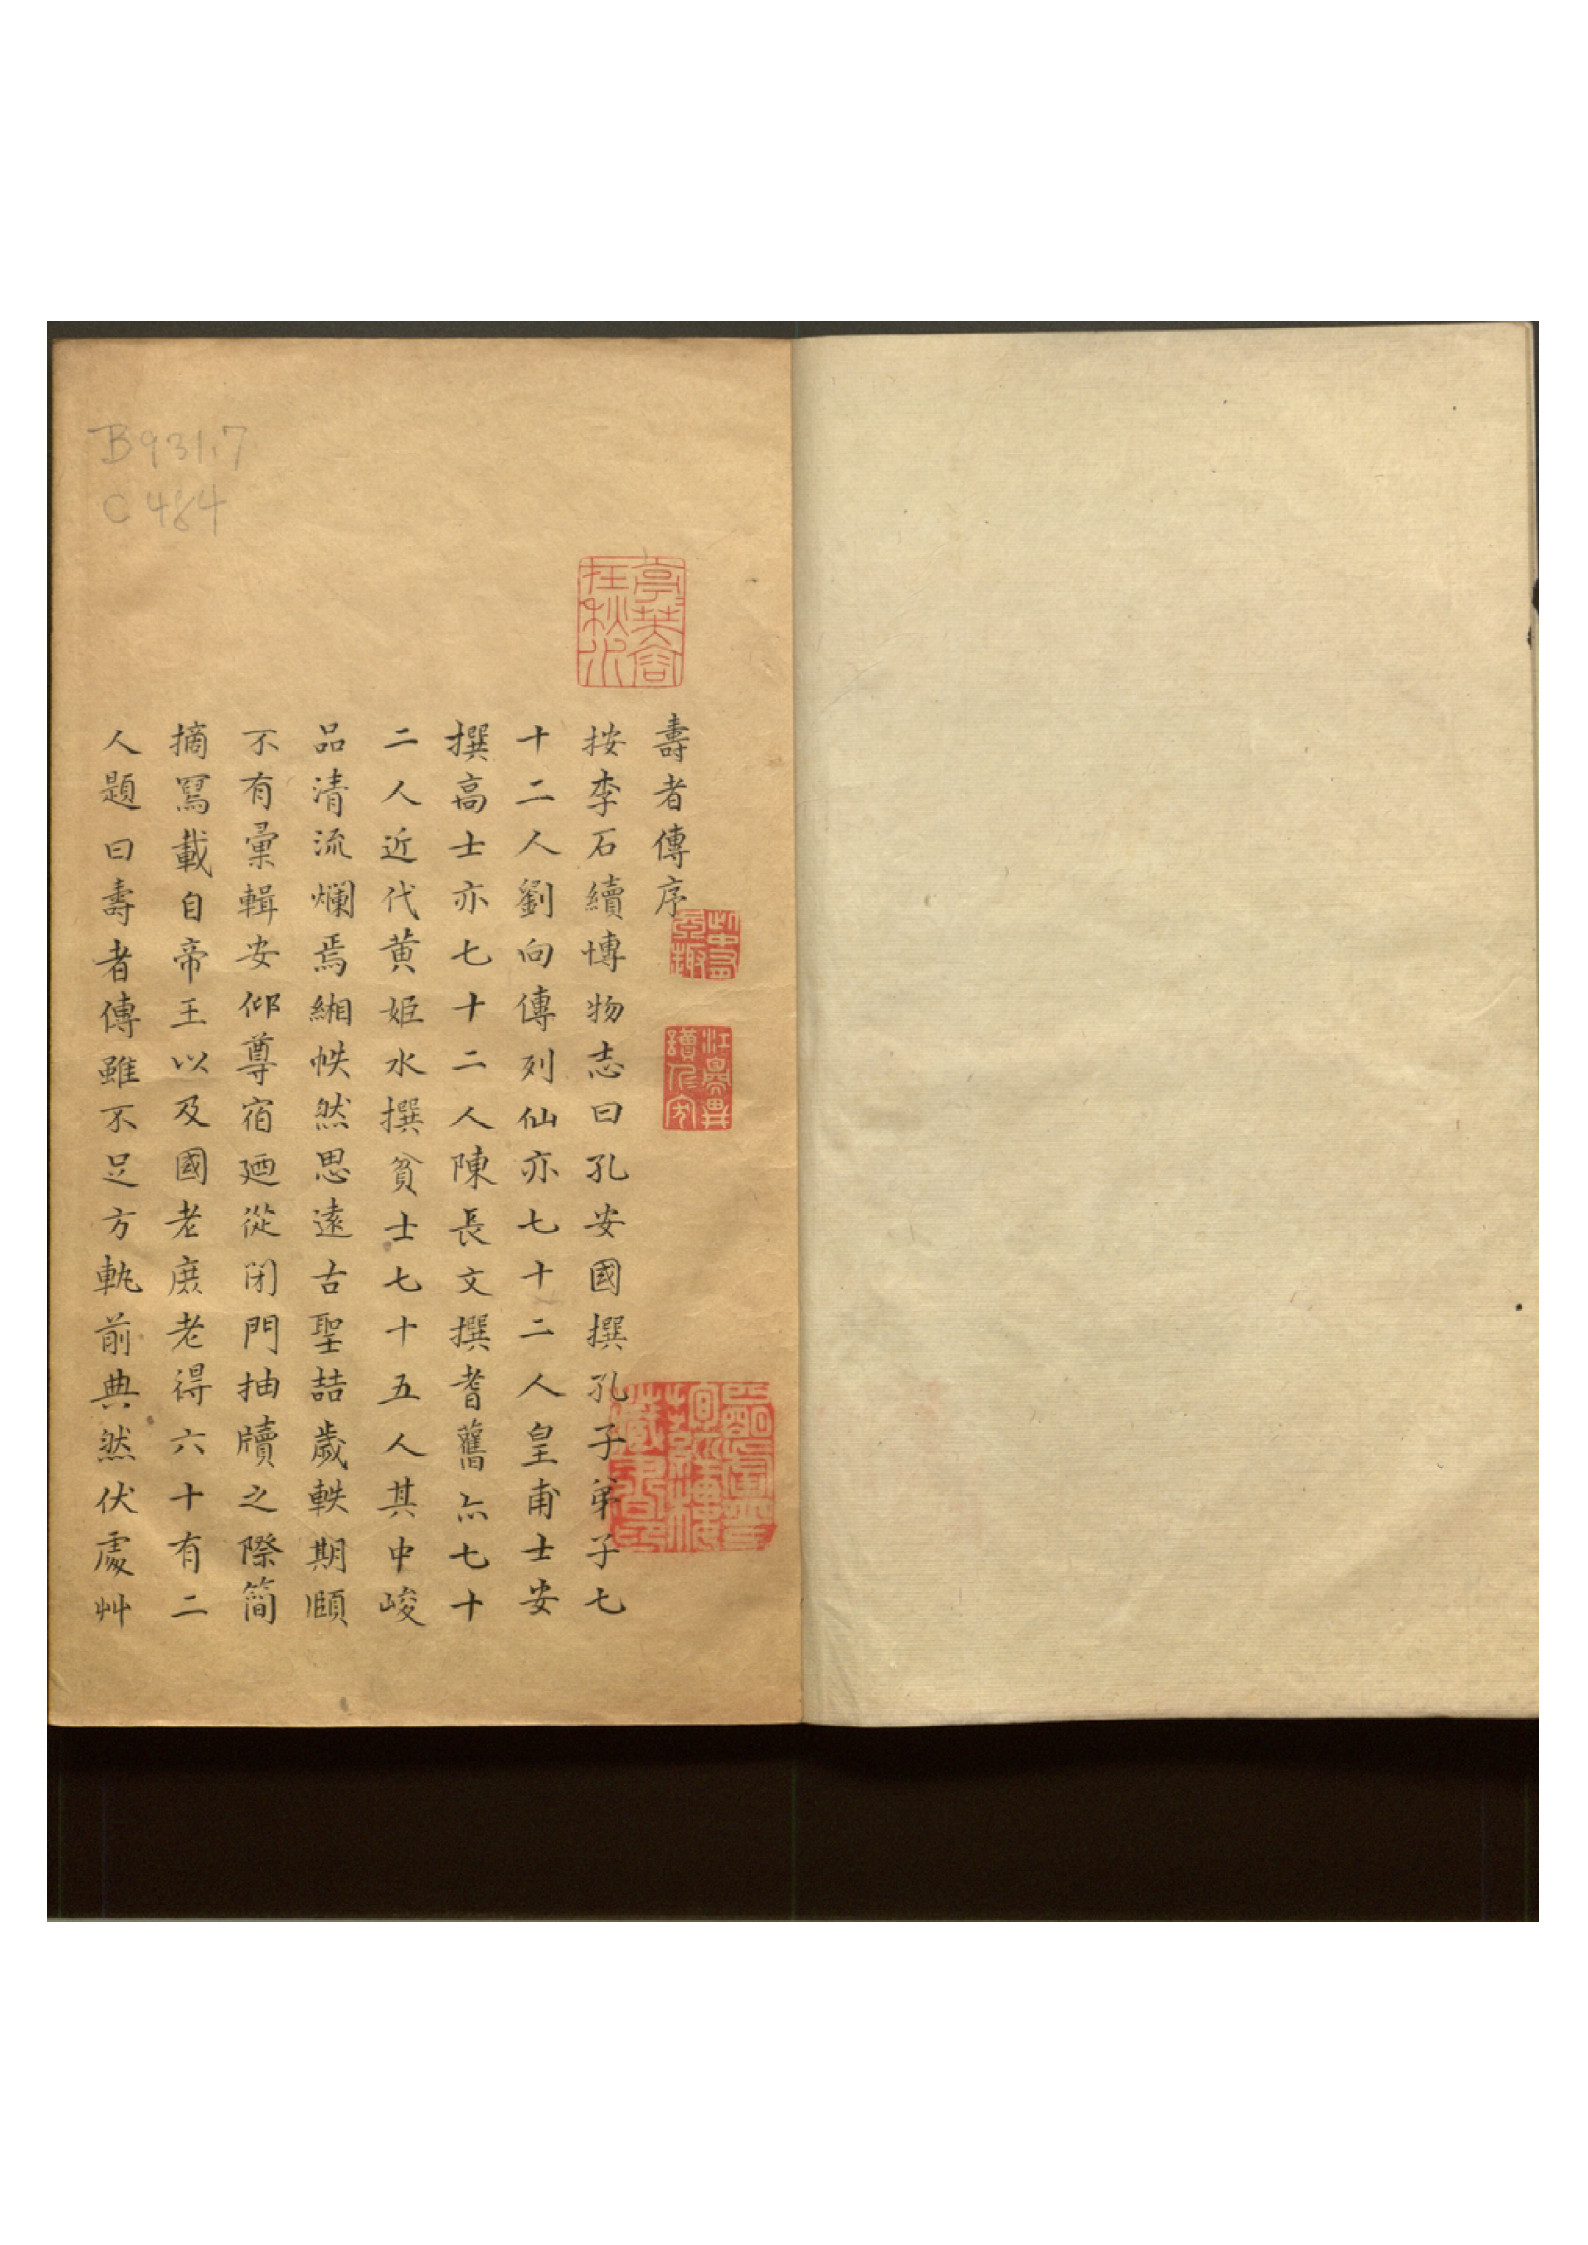 壽者傳序
按李石續博物志曰孔安國撰孔子弟子七
十二人劉向傳列仙亦七十二人皇甫士安
撰高士亦七十二人陳長文撰耆舊亦七十
二人近代黄姬水撰貧士七十五人其中峻
品清流爛焉緗帙然思遠古聖喆歲軼期頤
不有彙輯安仰尊宿廼從閉門抽牘之際簡
摘寫載自帝王以及國老庶老得六十有二
人題曰壽者傳雖不足方軌前典然伏處艸
B931.7
C484